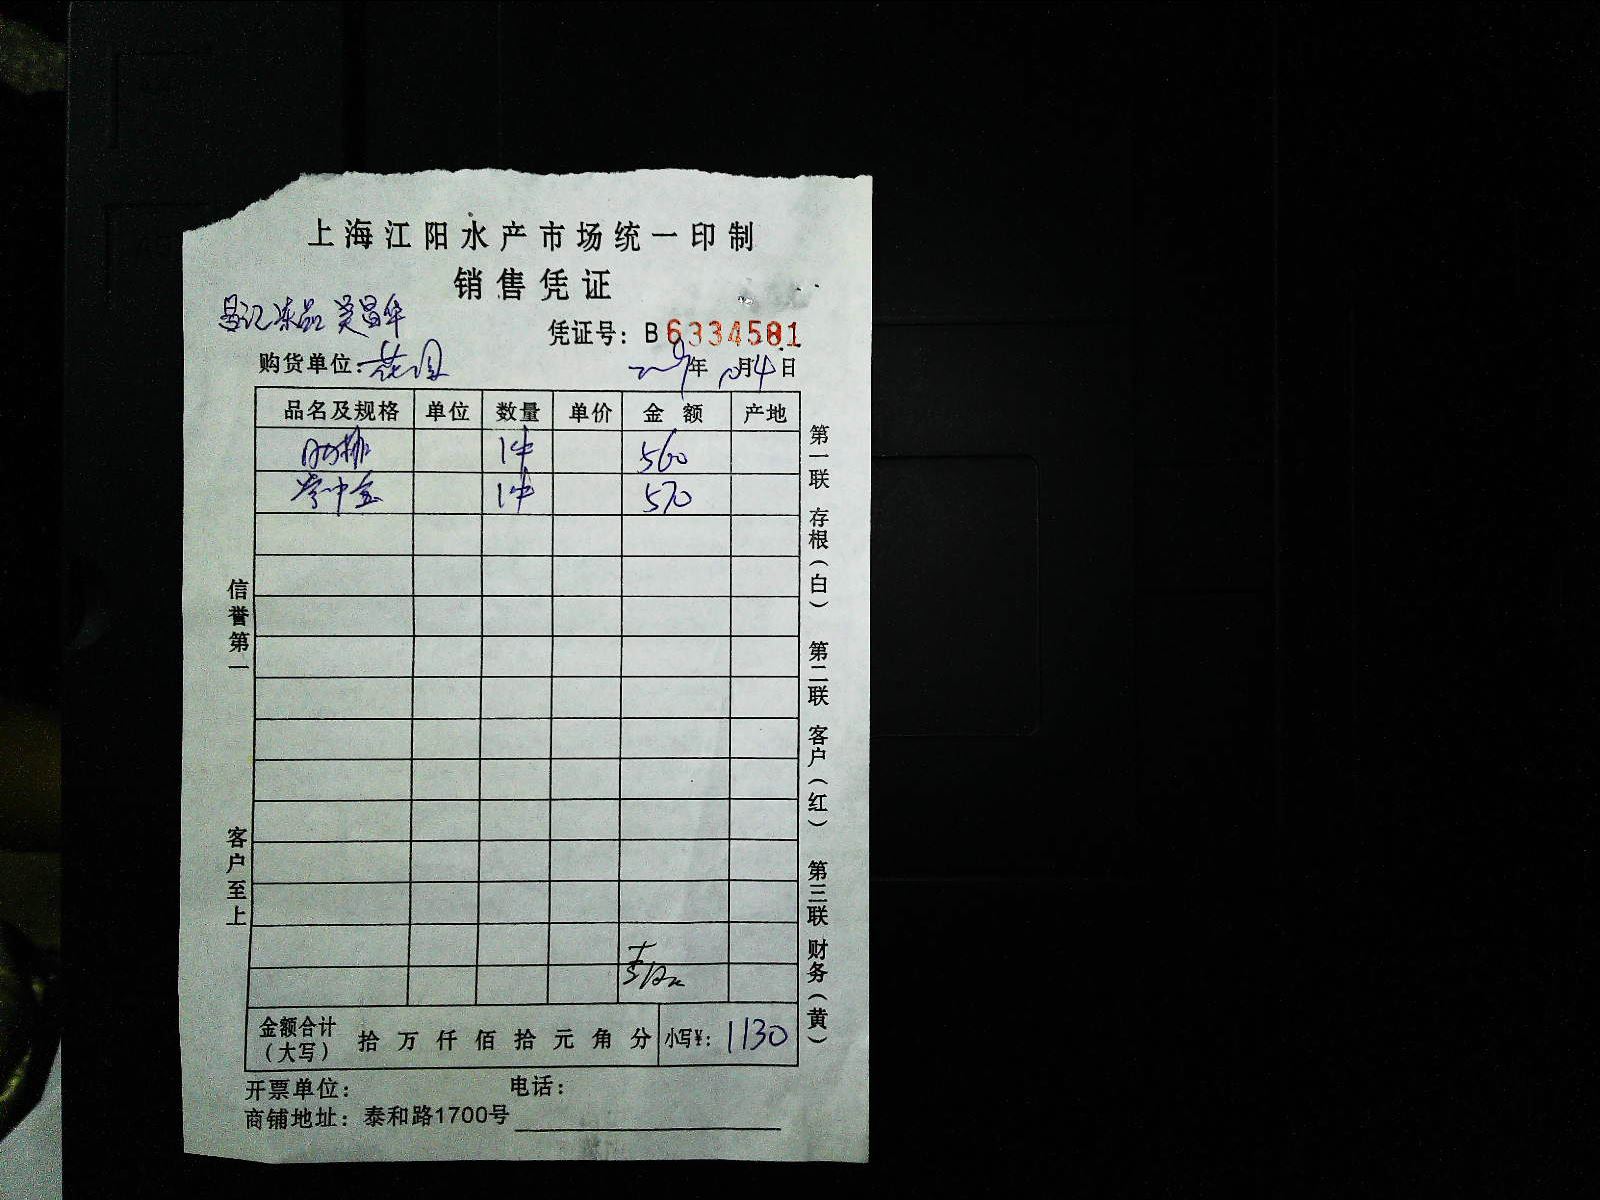 上海江阳水产市场统一印制
销售凭证
昌记冻品 吴昌华
凭证号：B 6334581
购货单位：花园
年 10月4日
品名及规格 单位 数量 单价 金额 产地
肋排 1件 560
掌中宝 1件 570
金额合计（大写） 拾万仟佰拾元角分 小写¥：1130
开票单位： 电话：
商铺地址：泰和路1700号
信誉第一 客户至上
第一联 存根（白） 第二联 客户（红） 第三联 财务（黄）